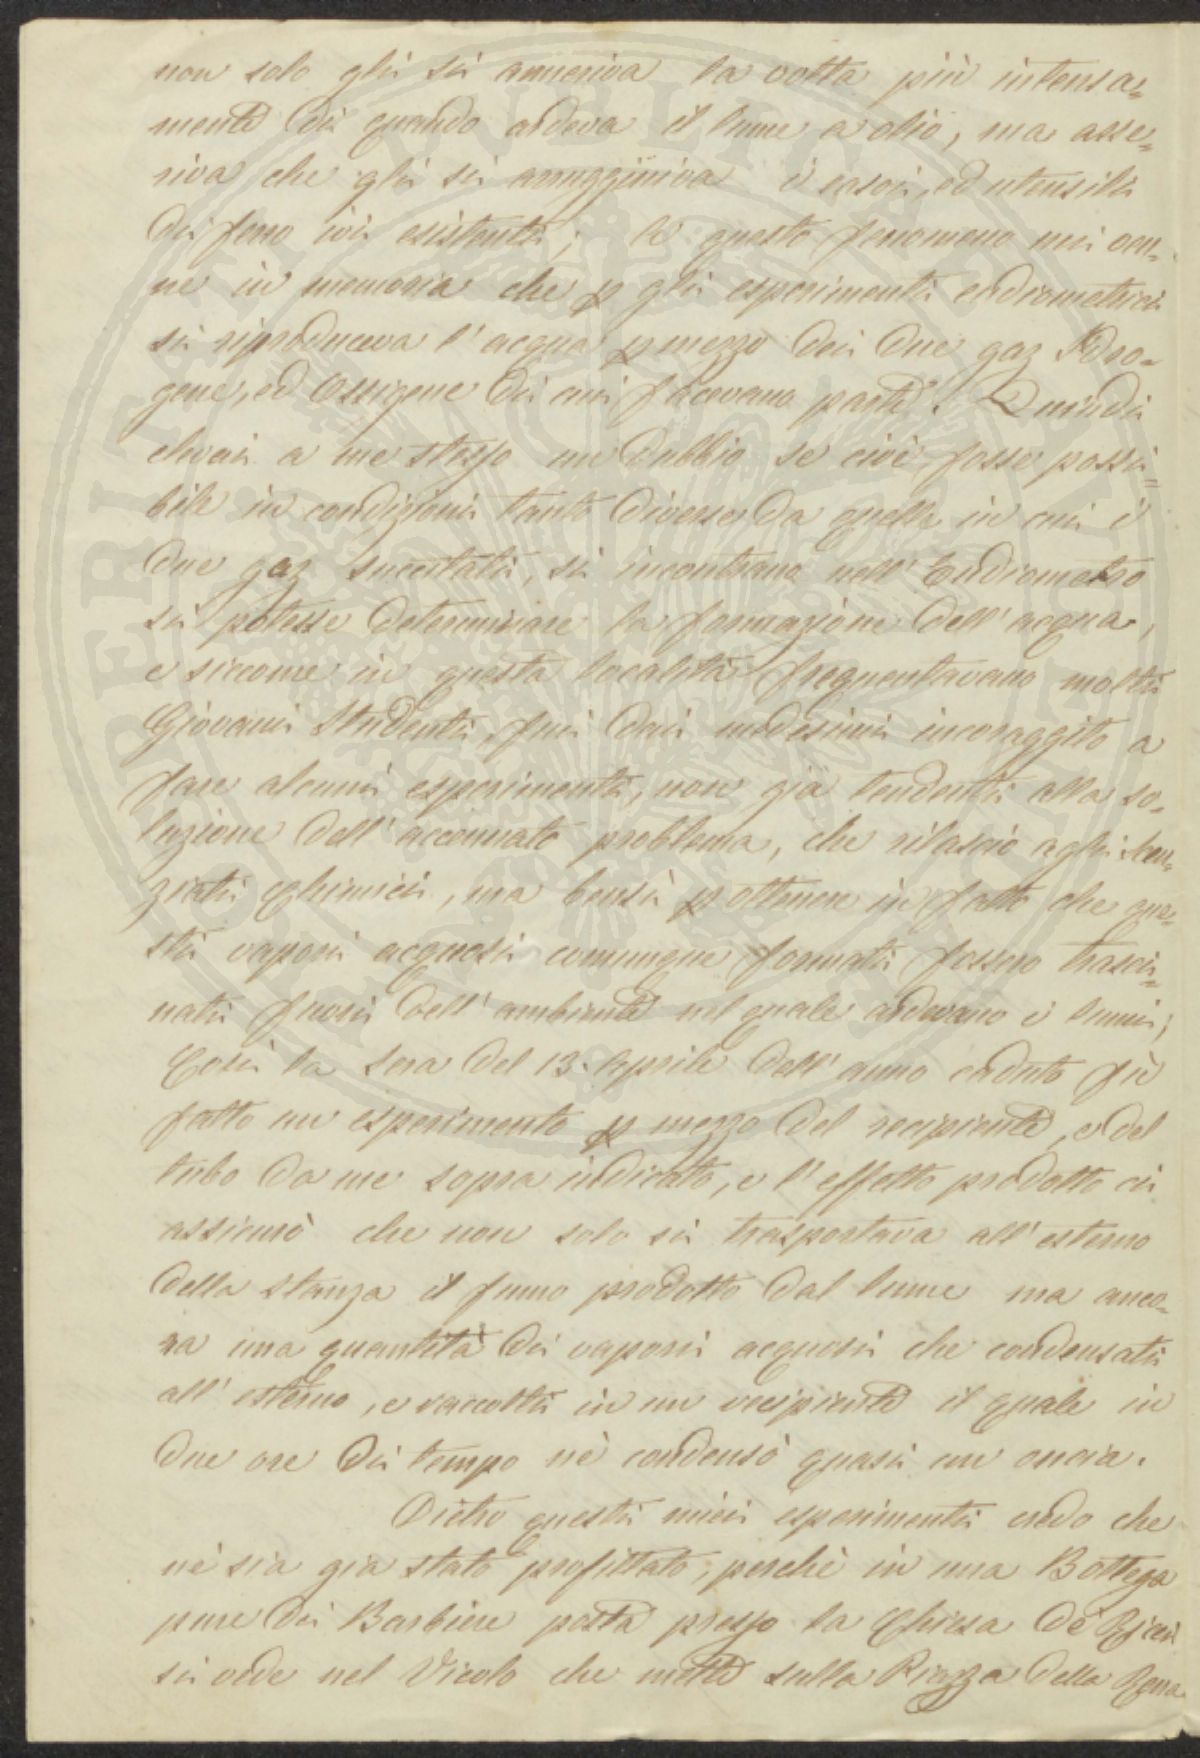 non solo gli si anneriva la volta più intensa=
mente di quando ardeva il lume a olio, ma asse=
riva che gli si arrugginiva i rasoi, ed utensili
di ferro ivi esistenti; a questo fenomeno mi ven=
ne in memoria che p gli esperimenti eudiometrici
si riproduceva l'acqua p mezzo dei due gaz Idro=
gene, ed Ossigene di cui facevano parte. Quindi
elevai a me stesso un dubbio se ciò fosse possi=
bile in condizioni tanto diverse da quella in cui i
due gaz succitati, si incontrano nell'Eudiometro
si potesse determinare la formazione dell'acqua,
e siccome in questa località frequentavano molti
Giovani Studenti, fui dai medesimi incoraggito a
fare alcuni esperimenti, non già tendenti alla so=
luzione dell'accennato problema, che rilascio agli scen=
ziati Chimici, ma bensì p ottenere in fatto che que=
sti vapori acquosi comunque formati fossero trasci=
nati fuori dell'ambiente nel quale ardevano i lumi;
Così la sera del 13. Aprile dell'anno caduto fù
fatto un esperimento p mezzo del recipiente, e del
tubo da me sopra indicato, e l'effetto prodotto ci
assicurò che non solo si trasportava all'esterno
della stanza il fumo prodotto dal lume ma anco=
ra una quantità di vapori acquosi che condensati
all'esterno, e raccolti in un recipiente il quale in
due ore di tempo nè condensò quasi un oncia.
Dietro questi miei esperimenti credo che
nè sia gia stato profittato, perchè in una Bottega
pure di Barbiere posta presso la Chiesa de' Ricci
si vede nel Vicolo che mette sulla Piazza della Rena
PROPERITATI PVBLICAE AVGENDAE